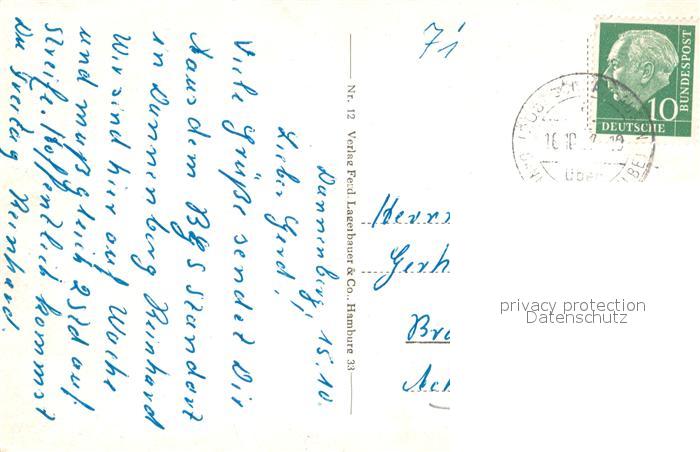 Dannenberg, 15.10.
Lieber Gerd,
Viele Grüße sendet Dir
aus dem BGS Standort
in Dannenberg Reinhard
Wir sind hier auf Wache
und muß gleich 2 Std auf
Streife. Hoffentlich kommst
Du Freitag Reinhard.
Nr. 12 Verlag Ferd. Lagerbauer & Co., Hamburg 33
71
Herrn
Gerh
Bra
DEUTSCHE
BUNDESPOST
10
16.10.
über
privacy protection
Datenschutz